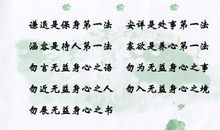 谦退是保身第一法　安详是处事第一法
涵容是待人第一法　寡欲是养心第一法
勿言无益身心之语　勿为无益身心之事
勿近无益身心之人　勿入无益身心之境
勿展无益身心之书